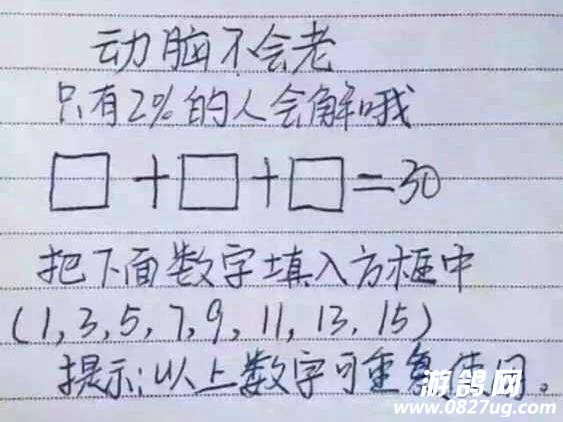 动脑不会老
只有2%的人会解哦
□+□+□=30
把下面数字填入方框中
(1,3,5,7,9,11,13,15)
提示:以上数字可重复使用。
游鸽网
www.0827ug.com